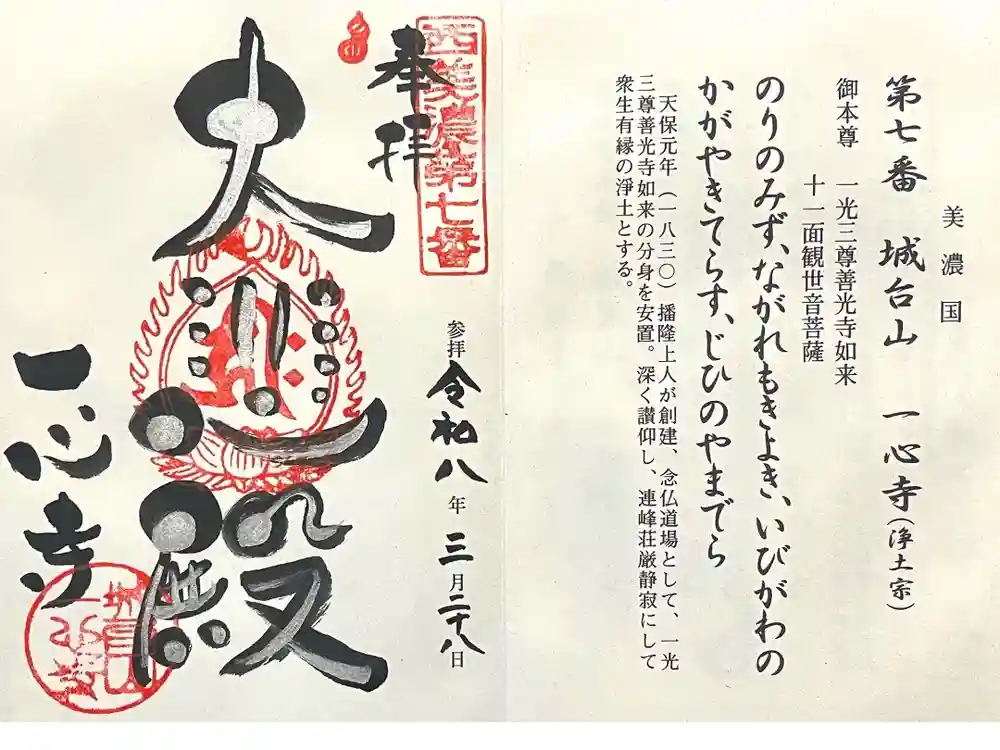 美濃国
第七番 城台山 一心寺(浄土宗)
御本尊 一光三尊善光寺如来
十一面観世音菩薩
のりのみず、ながれもきよき、いびがわの
かがやきてらす、じひのやまでら
天保元年(一八三〇)播隆上人が創建、念仏道場として、一光
三尊善光寺如来の分身を安置。深く讃仰し、連峰荘厳静寂にして
衆生有縁の浄土とする。
西美濃第七番
奉拝
参拝 令和八年 三月二十八日
大悲殿
一心寺